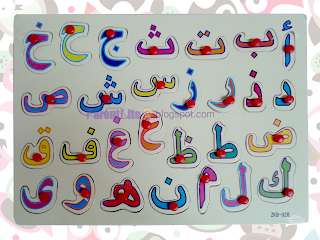 أ ب ت ث ج ح خ
د ذ ر ز س ش ص
ض ط ظ ع غ ف ق
ك ل م ن ه و ى
.blogspot.com